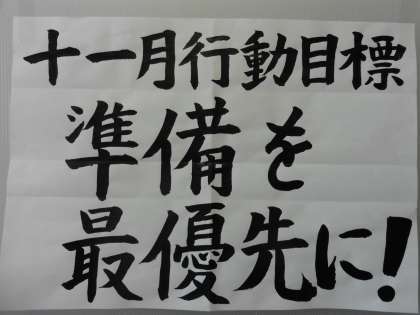 十一月行動目標
準備を
最優先に!